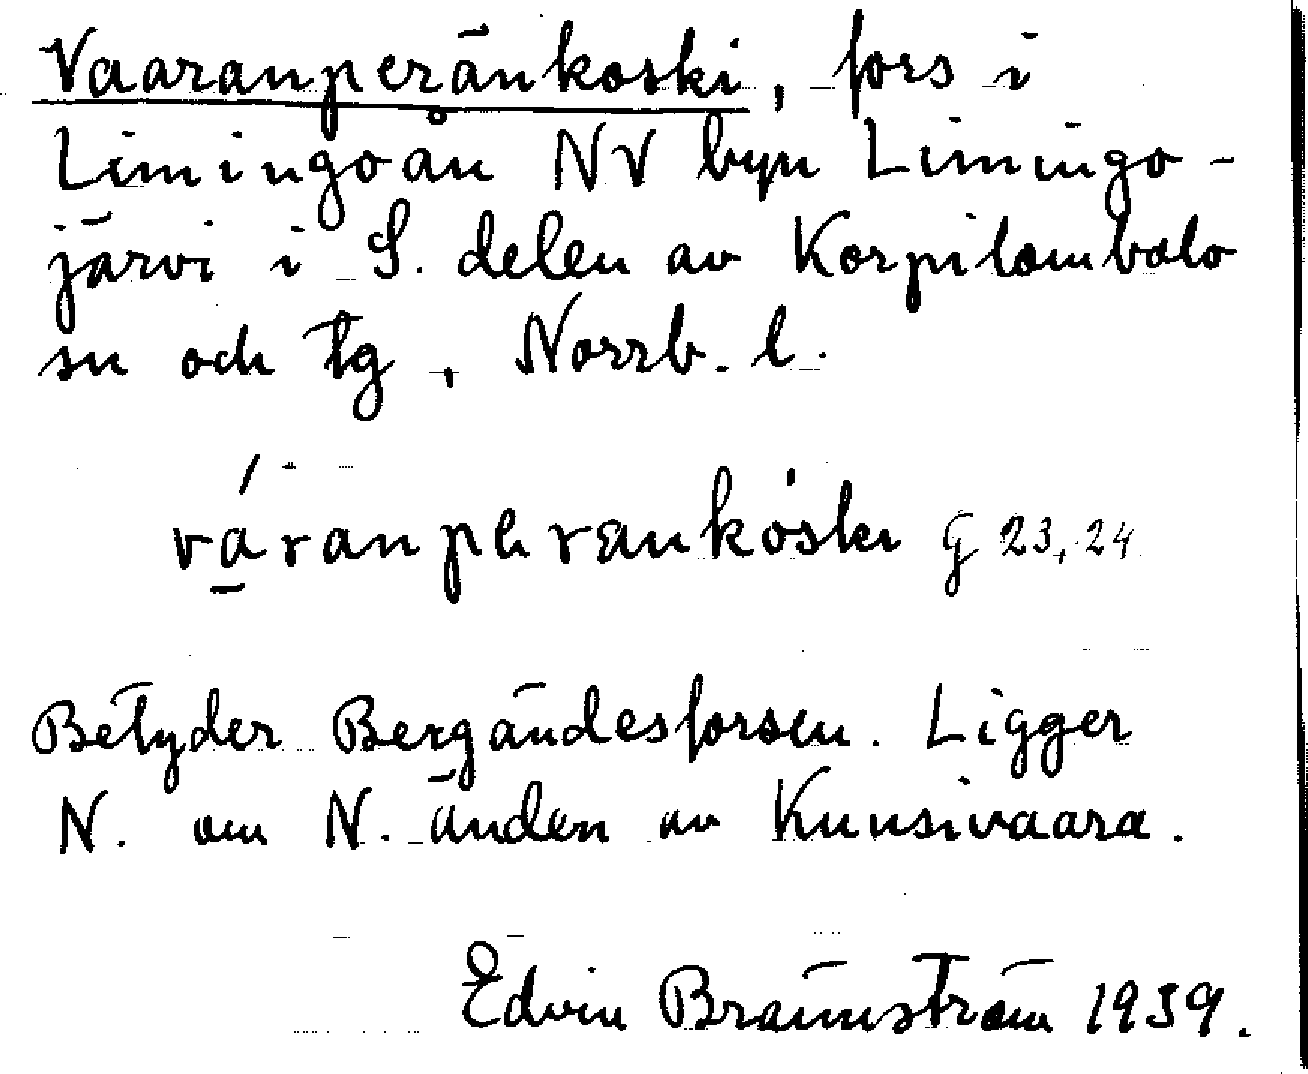 Vaaranperänkoski, fors i
Limingoån NV byn Limingo-
järvi i S. delen av Korpilombolo
sn och tg, Norrb. l.
G 23, 24
Betyder Bergändesforsen. Ligger
N. om N. änden av Kuusivaara.
Edvin Brännström 1939.